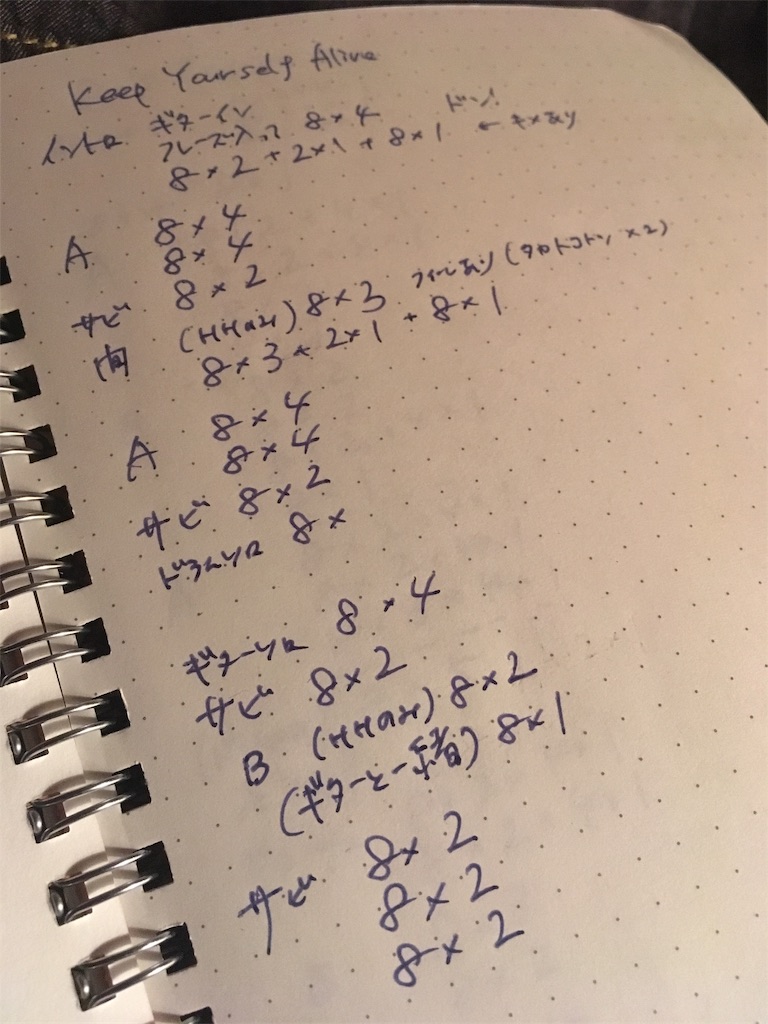 Keep Yourself Alive
イントロ ギターイン
フレーズ入って 8×4 ドン!
8×2+2×1+8×1 ← キメあり
A 8×4
8×4
8×2
サビ (HHのみ) 8×3 フィルあり (タカトコトン ×2)
間 8×3+2×1+8×1
A 8×4
8×4
サビ 8×2
ドラムソロ 8×
ギターソロ 8×4
サビ 8×2
B (HHのみ) 8×2
(ギターと一緒) 8×1
サビ 8×2
8×2
8×2